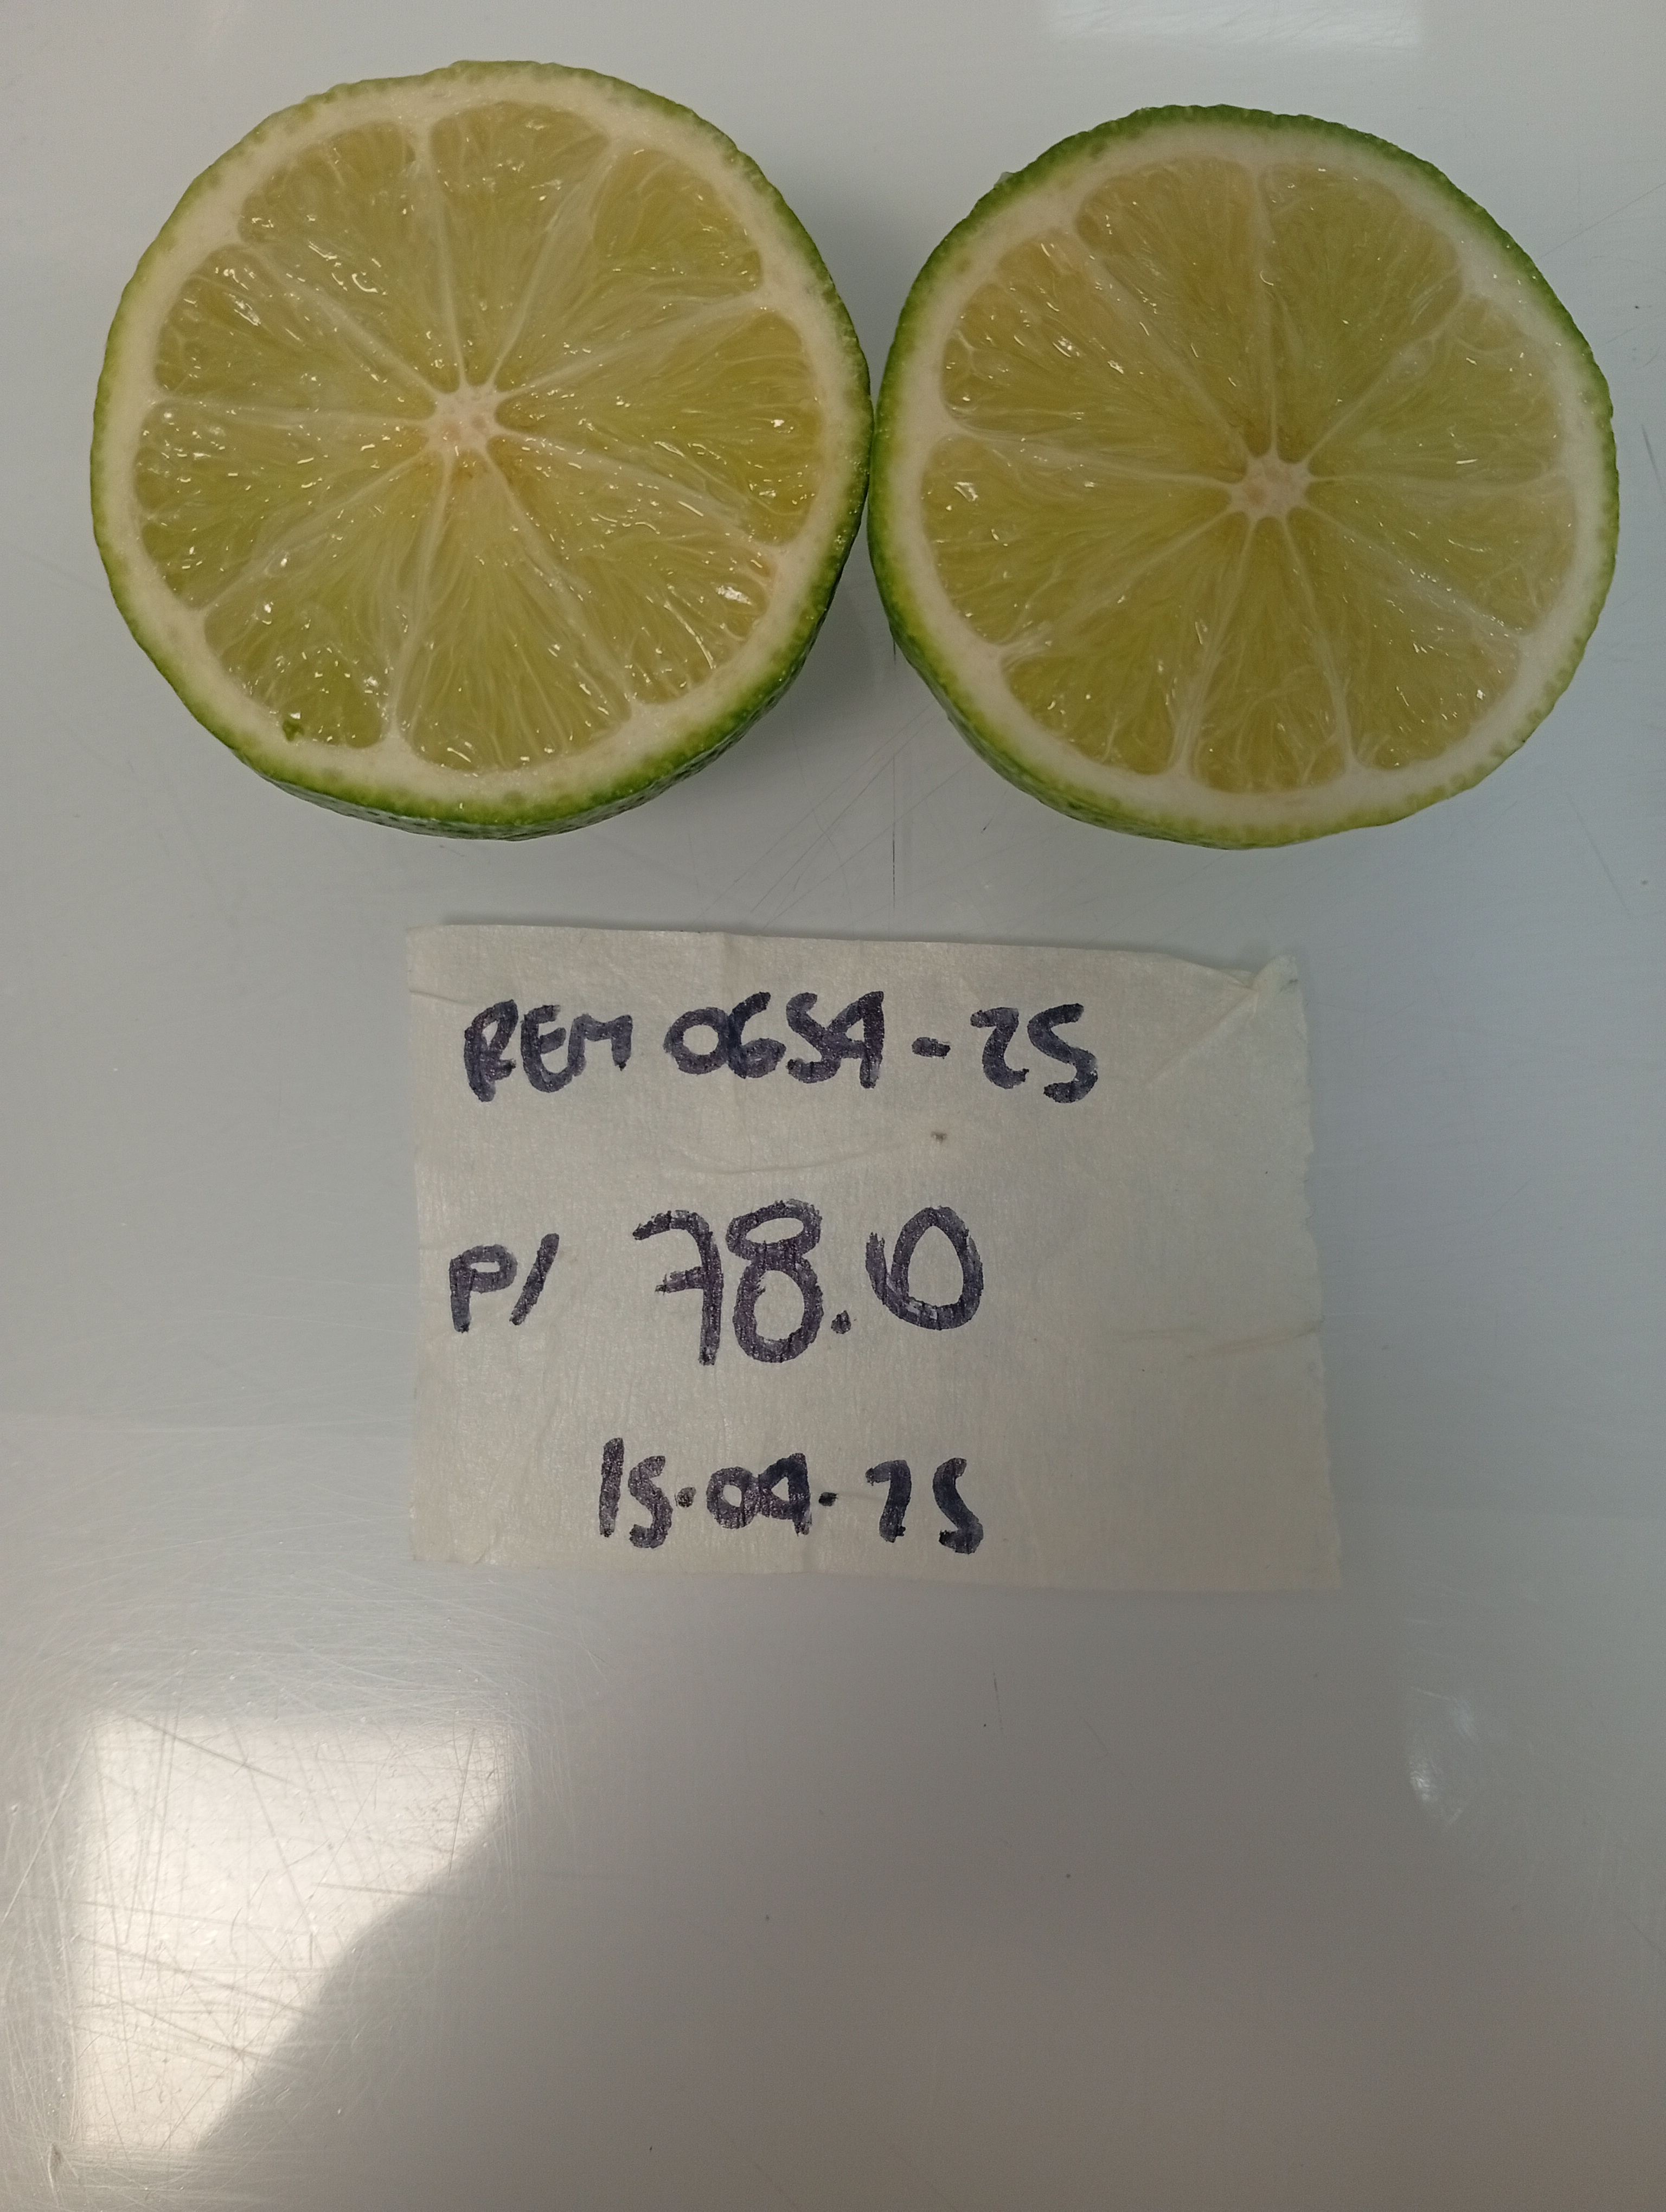 REM 0654-25
P/ 78.0
15-04-25